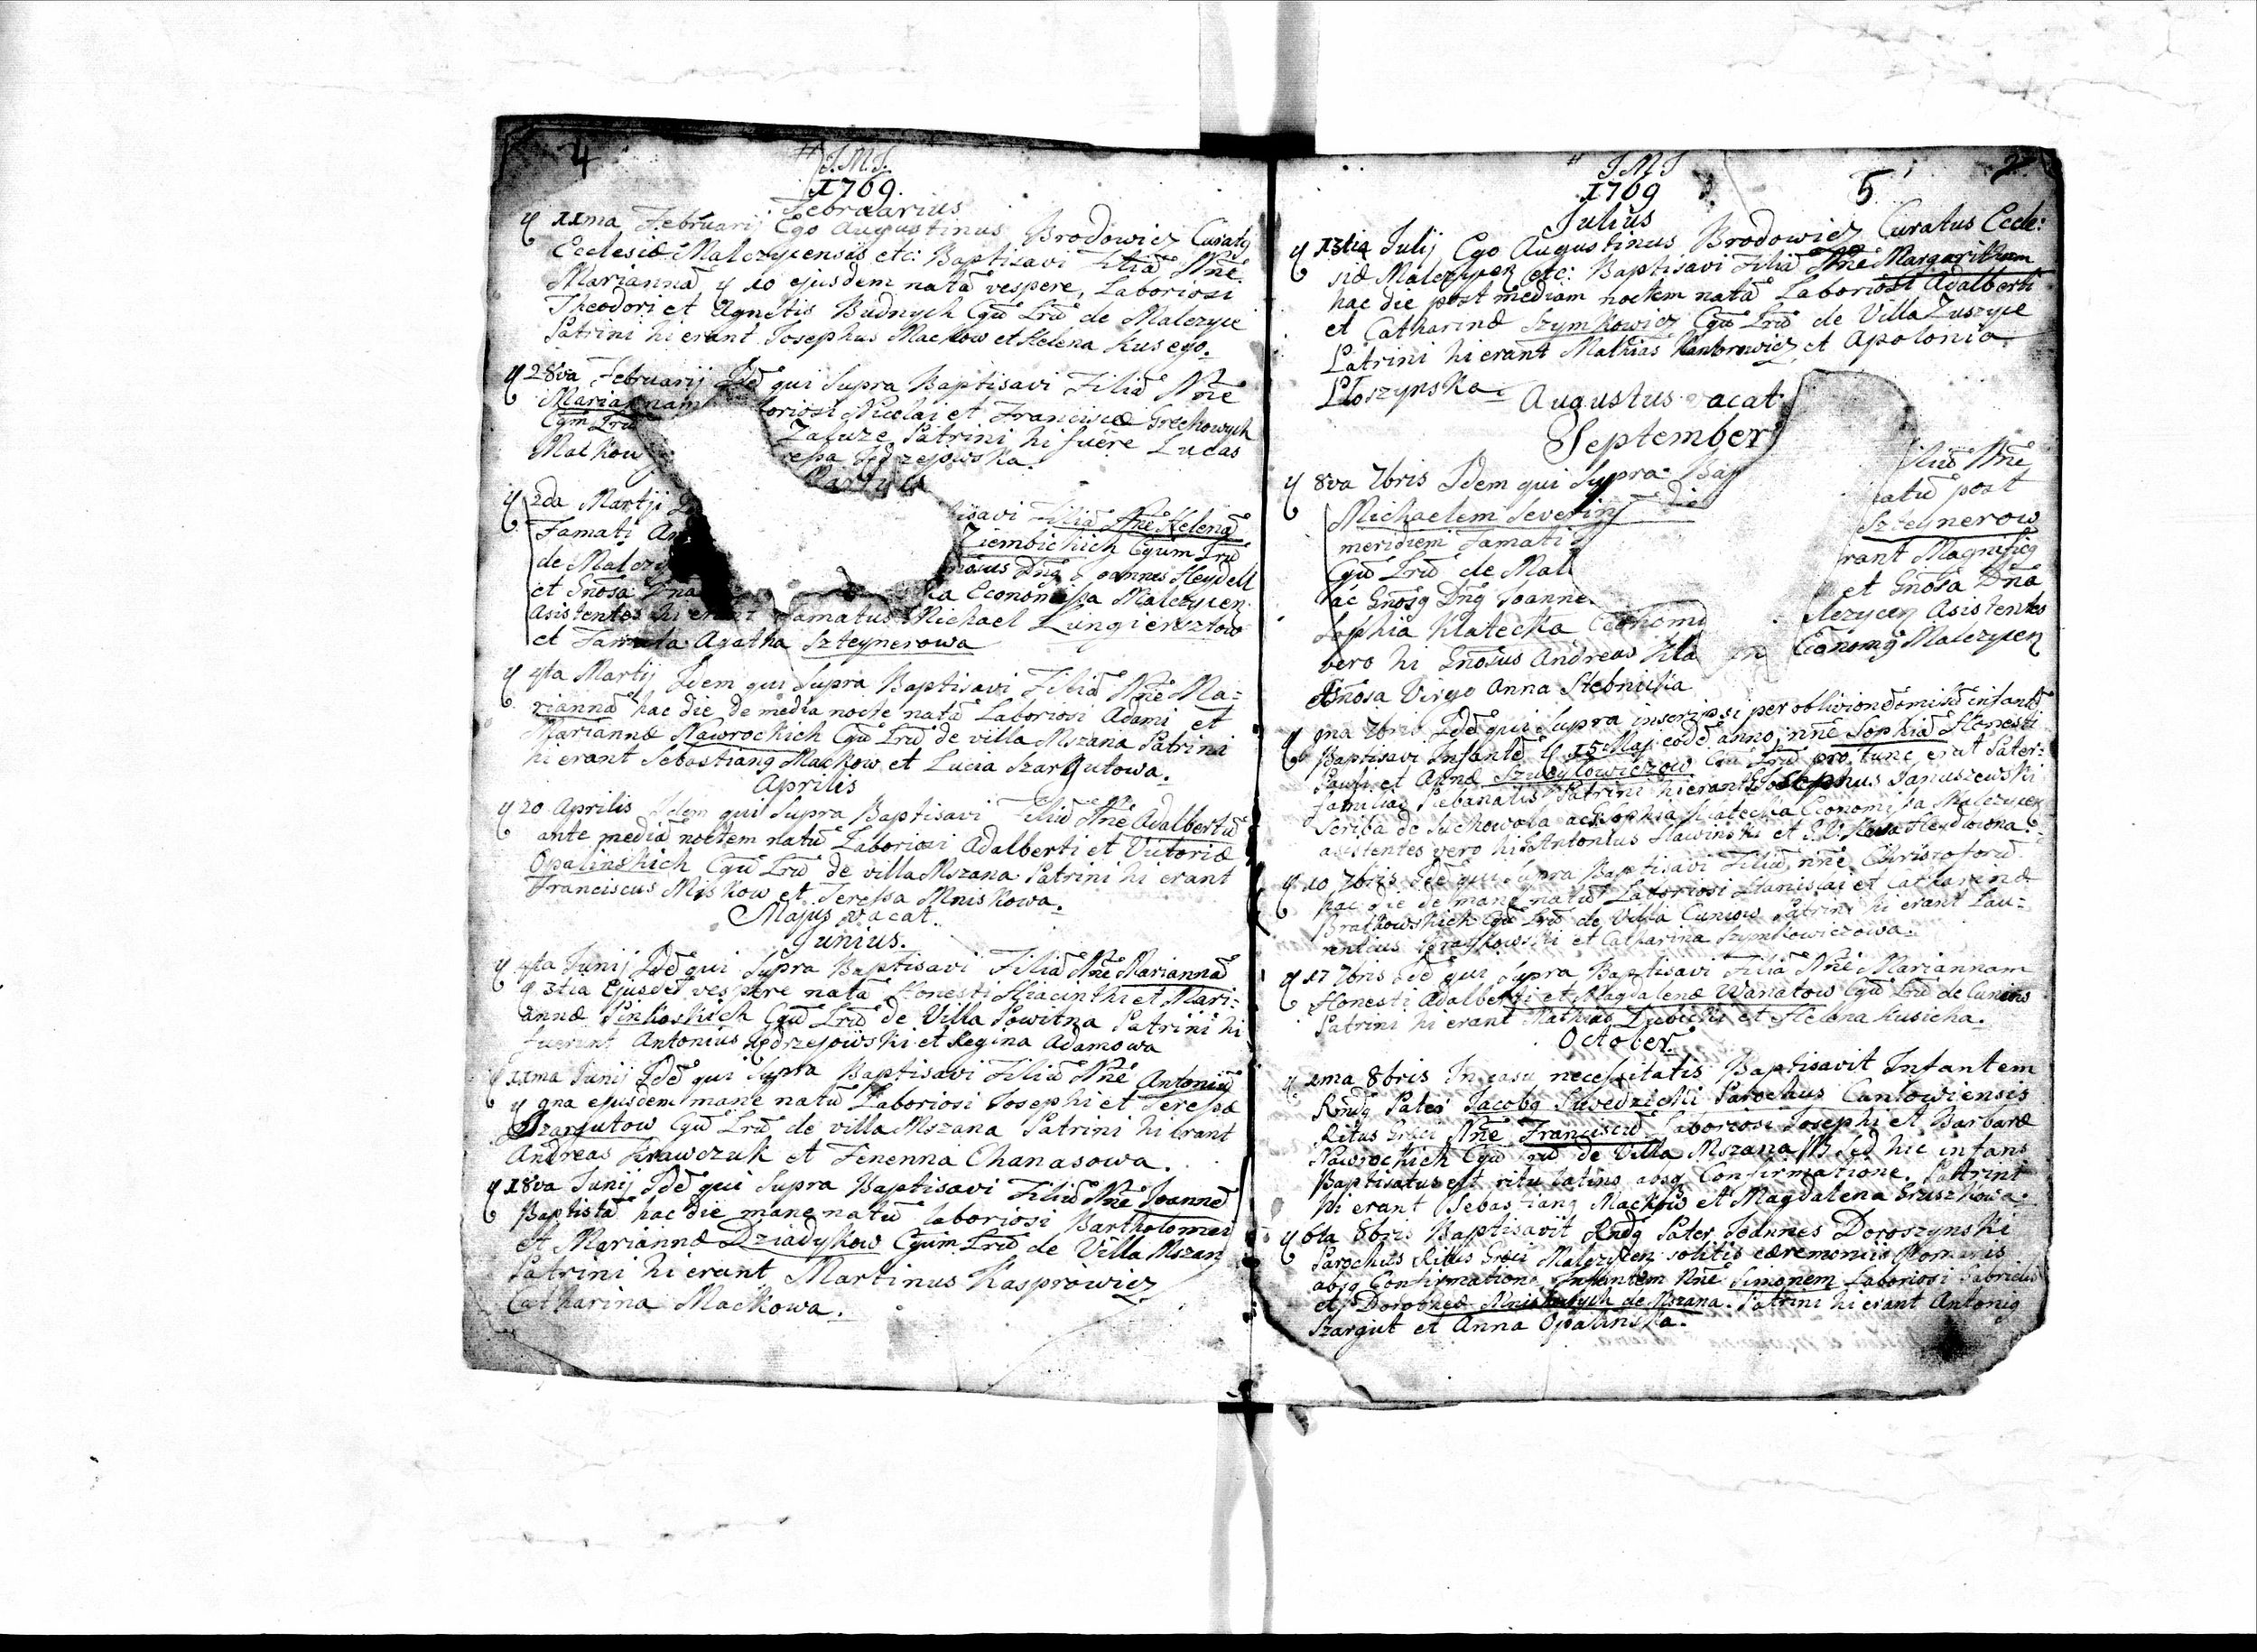 4
J.M.J.
1769.
Februarius
11ma Februarij Ego Augustinus Brodowicz Curatq
Ecclesiæ Malczycensis etc: Baptisavi Filiã Nñe
Mariannã 10 ejusdem natã vespere, Laboriosi
Theodori et Agnetis Budnych Cgũ Lrũ de Malczyce
Patrini hi erant Josephus Mackow et Helena Kusego.
28va Februarij Idẽ qui Supra Baptisavi Filiã Nñe
Mariannam oriosi Nicolai et Franciscæ Grechowych
Cgm Lrũ Zaluze Patrini hi fuêre Lucas
Mackow ressa Jędrzejowska.
Martius
2da Martji tisavi Filiã Nñe Helenã
Famati An Ziembickich Cgum Lrũ
de Malczy nosus Dnq Joannes Heydell
et Gnosa Dna ka Economissa Malczycen
Asistentes hi erant Famatus Michael Lungiersztow
et Famata Agatha Szteynerowa
4ta Martij Idem qui Supra Baptisavi Filiã Nñe Ma=
riannã hac die de media nocte natã Laboriosi Adami et
Mariannæ Nawrockich Cgũ Lrũ de villa Mszana Patrini
hi erant Sebastianq Mackow et Lucia Szargutowa.
Aprilis
20 Aprilis Idem qui Supra Baptisavi Filiũ Nñe Adalbertũ
ante mediã noctem natũ Laboriosi Adalberti et Victoriæ
Opalinskich Cgũ Lrũ de villa Mszana Patrini hi erant
Franciscus Miskow et Teressa Mniskowa.
Majus vacat.
Junius.
4ta Junij Idẽ qui Supra Baptisavi Filiã Nñe Mariannã
3tia Ejusdẽ vespere natã Honesti Hiacinthi et Mari=
annæ Pinkoskich Cgũ Lrũ de Villa Powitna Patrini hi
fuerunt Antonius Jędrzejowski et Regina Adamowa
11ma Junij Idẽ qui Supra Baptisavi Filiũ Nñe Antoniũ
gna ejusdem mane natũ Laboriosi Josephi et Teressæ
Szargutow Cgũ Lrũ de villa Mszana Patrini hi erant
Andreas Krawczuk et Fenenna Chanasowa.
18va Junij Idẽ qui Supra Baptisavi Filiũ Nñe Joannẽ
Baptistã hac die mane natũ laboriosi Bartholomei
et Mariannæ Dziadykow Cgum Lrũ de Villa Mszan
Patrini hi erant Martinus Kasprowicz
Catharina Mackowa.
J M J
1769
5
Julius
13tia Julij Ego Augustinus Brodowicz Curatus Eccle:
siæ Malczycen etc: Baptisavi Filiã Nñe Margaritham
hac die post mediam noctem natã Laboriosi Adalberti
et Catharinæ Szymkowicz Cgũ Lrũ de Villa Zuszyce
Patrini hi erant Mathias Kantorowicz et Apolonia
Ploszynska.
Augustus vacat
September
8va 7bris Idem qui Supra Bap iliũ Nñe
Michaelem Severinũ die natũ post
meridiem Famati Szteynerow
Cgũ Lrũ de Mal rant Magnificq
ac Gnosq Dnq Joanne et Gnosa Dña
Sophia Klatecka Economi lczycen Asistentes
vero hi Gnosus Andreas Kla Economq Malczycen
Gnosa Virgo Anna Stebnicka
gna 7bris Idẽ qui Supra inscripsi per oblivionẽ omisũ infantẽ
Baptisavi Infantẽ 15 Maji eodẽ anno nñe Sophiã Honesti
Pauli et Annæ Cgũ Lrũ pro tunc erat Pater=
familias Plebanalis Patrini hi erant Josephus Januszewski
Scriba de Suchowola ac Sophia Klatecka Economissa Malczycen
asistentes vero hi Antonius Slawinski et
10 7bris Idẽ qui Supra Baptisavi Filiũ nñe Christoforũ
hac die de mane natũ Laboriosi Stanislai et Catharinæ
Bratkowskich Cgũ Lrũ de Villa Cuniow Patrini hi erant Lau=
rentius Bratkowski et Catharina Szymkowiczowa.
17 7bris Idẽ qui Supra Baptisavi Filiã Nñe Mariannam
Honesti Adalberti et Magdalenæ Wariatow Cgũ Lrũ de Cuniow
Patrini hi erant Mathias Dubicki et Helena Kusicha.
October.
1ma 8bris In casu necessitatis Baptisavit Infantem
Rndq Pater Jacobq Suvedzicki Parochus Cuniowiensis
Ritus Græci Nñe Franciscũ Laboriosi Josephi et Barbaræ
Nawrockich Cgũ Lrũ de Villa Mszana NB sed hic infans
Baptisatus est ritu latino absq Confirmatione. Patrini
hi erant Sebastianq Mackow et Magdalena Gruszkowa.
6ta 8bris Baptisavit Rndq Pater Joannes Doroszynski
Parochus Ritus Græci Malczycen solitis cæremoniis Romanis
absq Confirmatione Infantem Nñe Simonem Laboriosi Gabrielis
et Dorotheæ de Mszana. Patrini hi erant Antoniq
Szargut et Anna Opalinska.